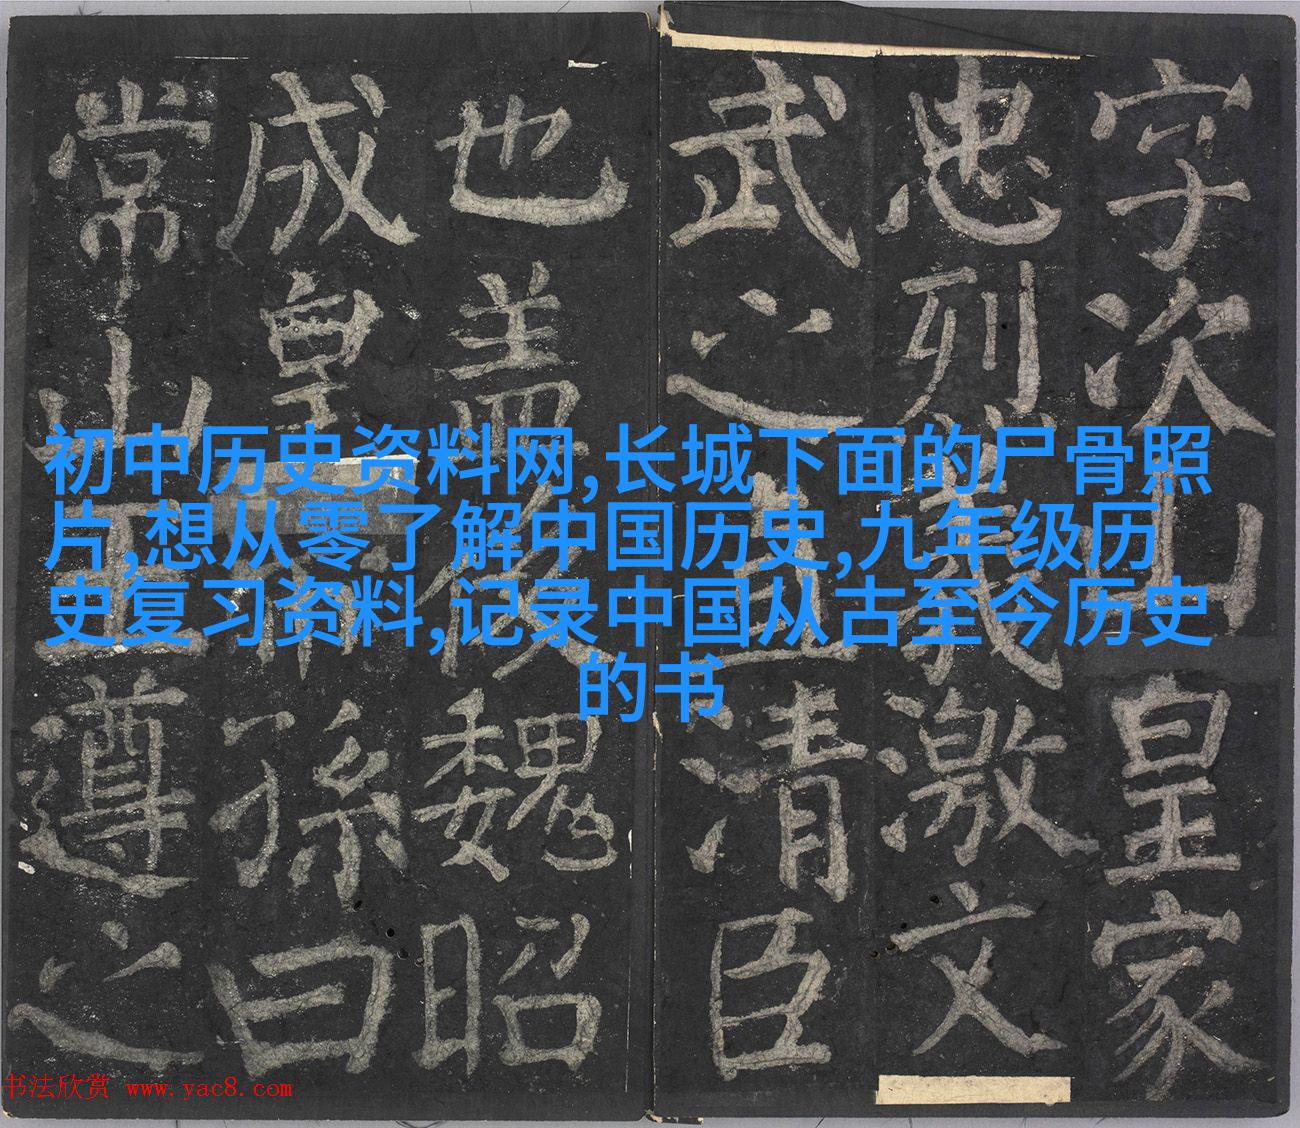 字次山皇家
忠烈義激文
武之直清臣
也盖後魏昭
成皇帝孫曰
常山王遵之
初中历史资料网,长城下面的尸骨照
片,想从零了解中国历史,九年级历
史复习资料,记录中国从古至今历史
的书
书法欣赏 www.yac8.com